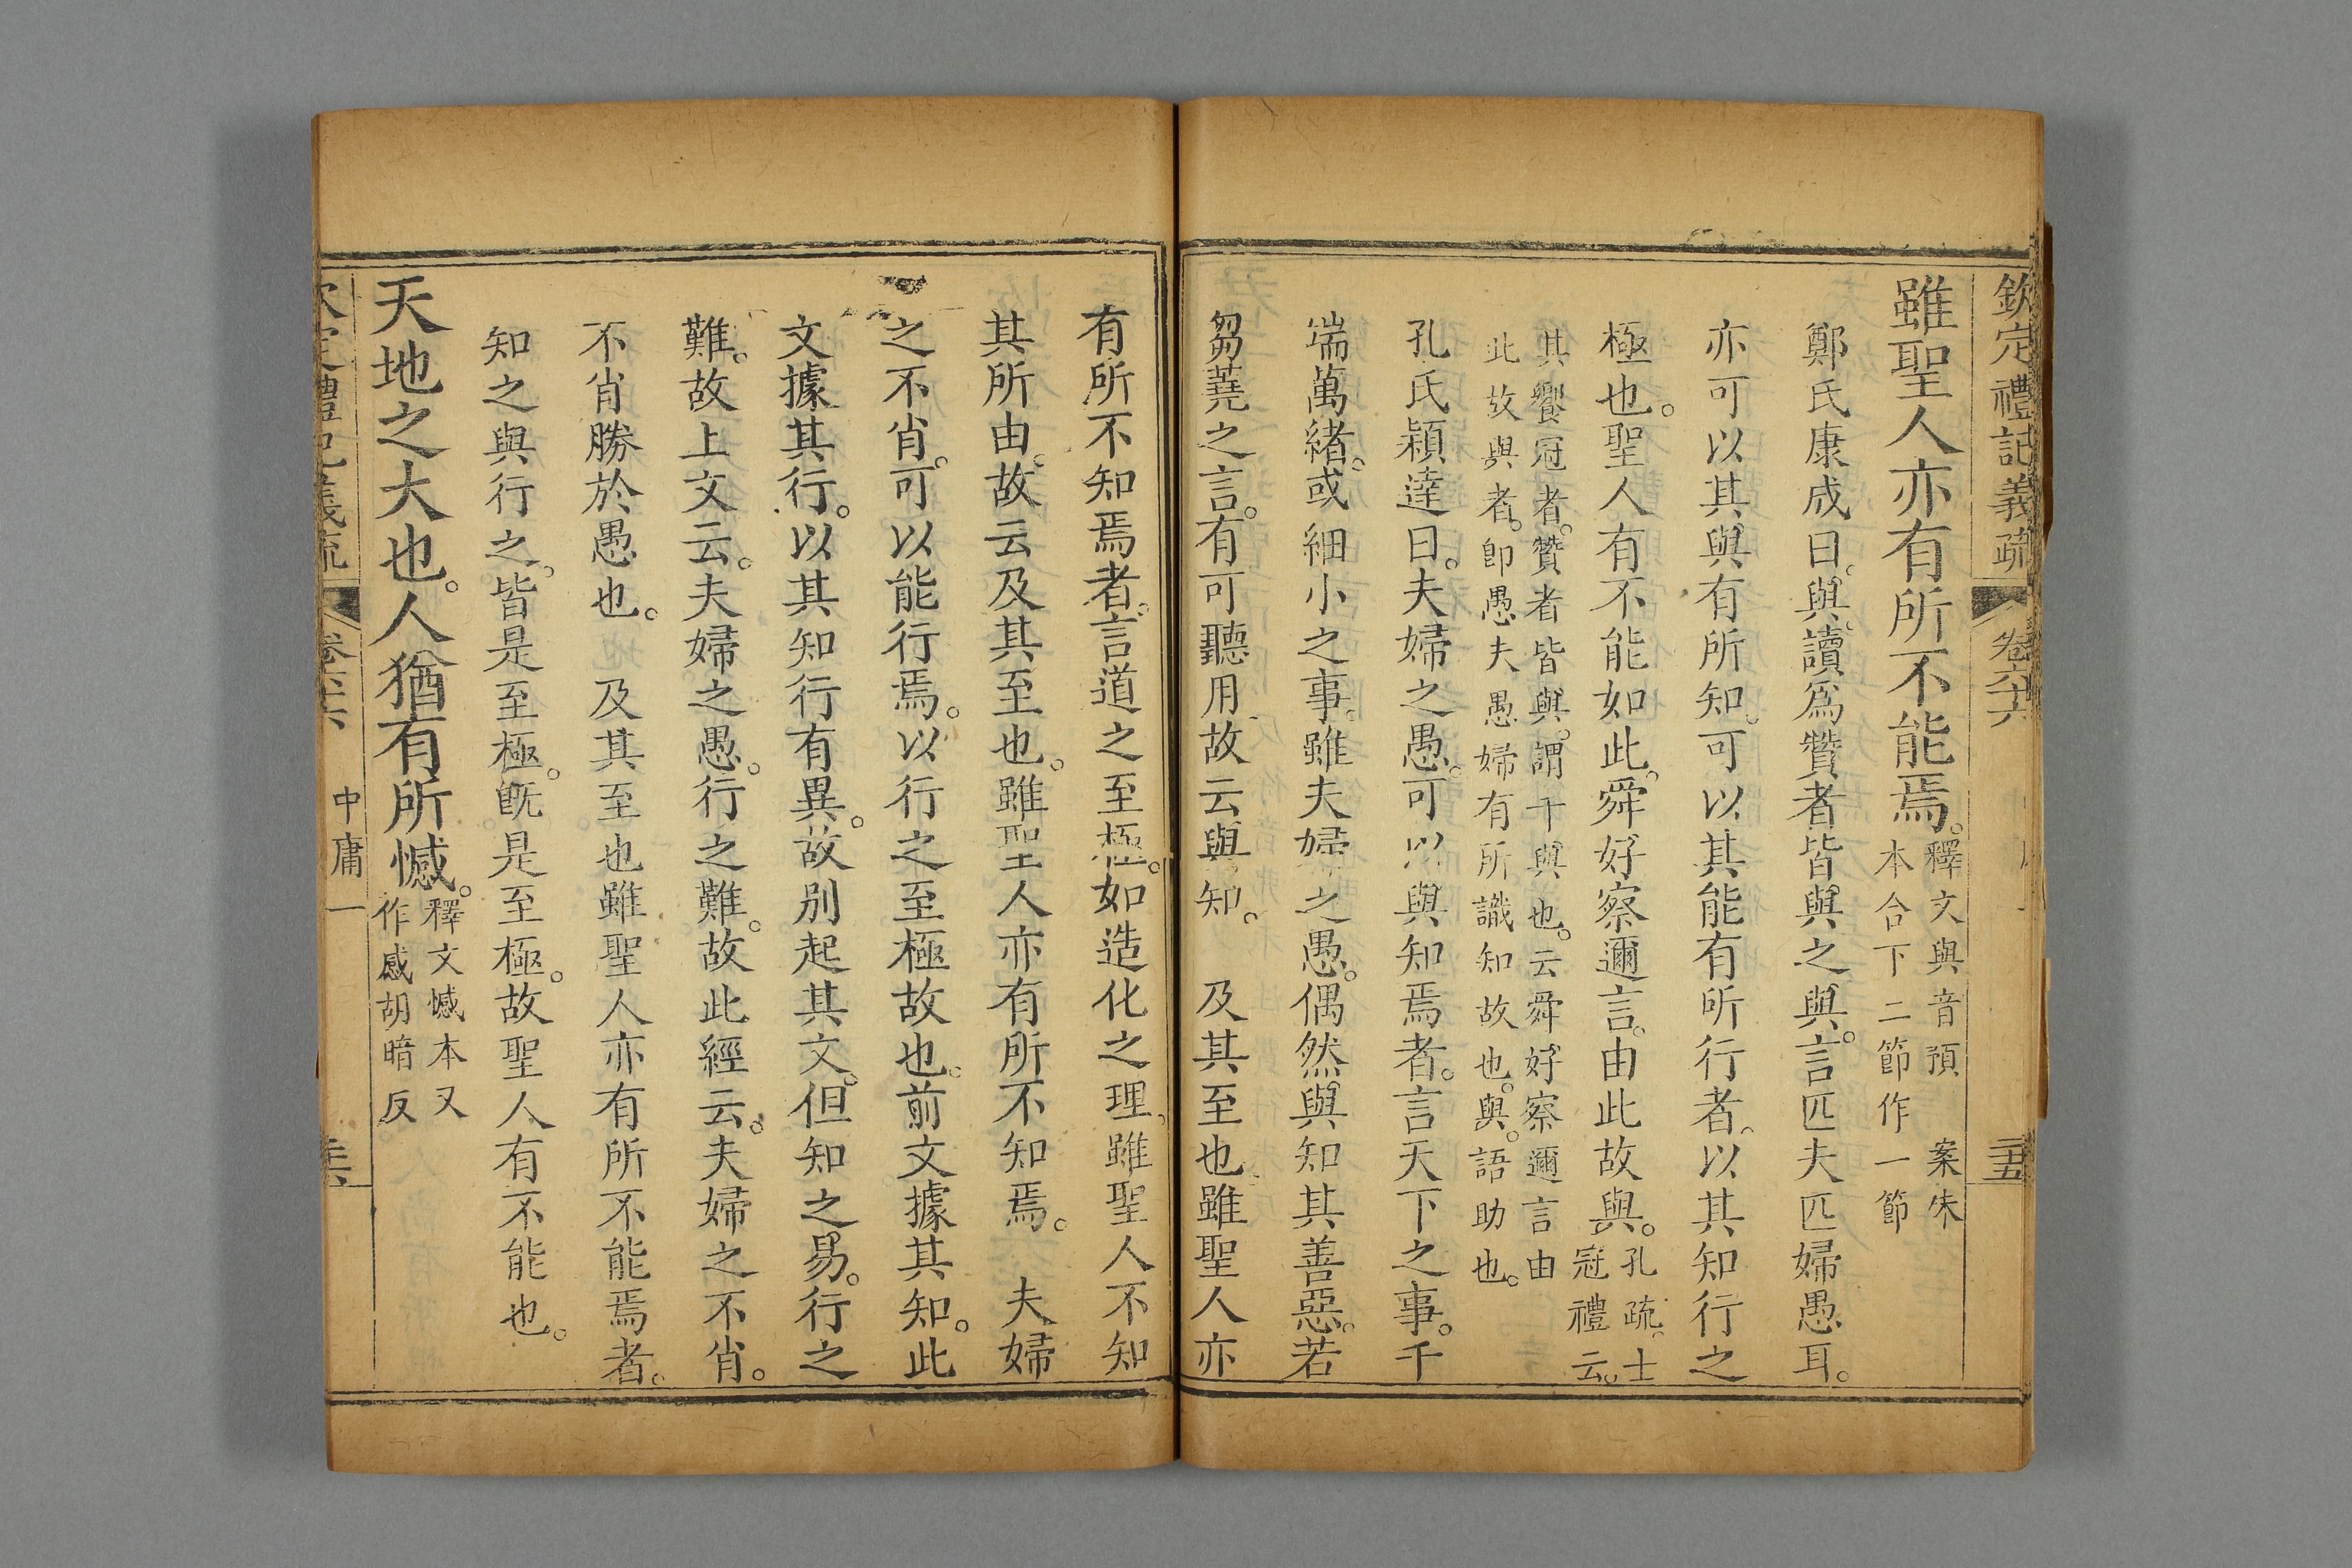 欽定禮記義疏 卷六十六
二十五
雖聖人亦有所不能焉。釋文與音預 案朱
本合下二節作一節
鄭氏康成曰。與。讀爲贊者皆與之與。言匹夫匹婦愚耳。
亦可以其與有所知。可以其能有所行者。以其知行之
極也。聖人有不能如此。舜好察邇言。由此故與。孔疏。士
冠禮云。
其饗冠者。贊者皆與。謂干與也。云舜好察邇言由
此故與者。卽愚夫愚婦有所識知故也。與。語助也。
孔氏穎達曰。夫婦之愚。可以與知焉者。言天下之事。千
端萬緒。或細小之事。雖夫婦之愚。偶然與知其善惡。若
芻蕘之言。有可聽用故云與知。 及其至也雖聖人亦
有所不知焉者。言道之至極。如造化之理。雖聖人不知
其所由。故云及其至也。雖聖人亦有所不知焉。 夫婦
之不肖。可以能行焉。以行之至極故也。前文據其知。此
文據其行。以其知行有異。故別起其文。但知之易。行之
難。故上文云。夫婦之愚。行之難。故此經云。夫婦之不肖。
不肖勝於愚也。 及其至也雖聖人亦有所不能焉者。
知之與行之。皆是至極。旣是至極。故聖人有不能也。
天地之大也。人猶有所憾。釋文憾本又
作感胡暗反
禮記義疏 卷六十六 中庸一